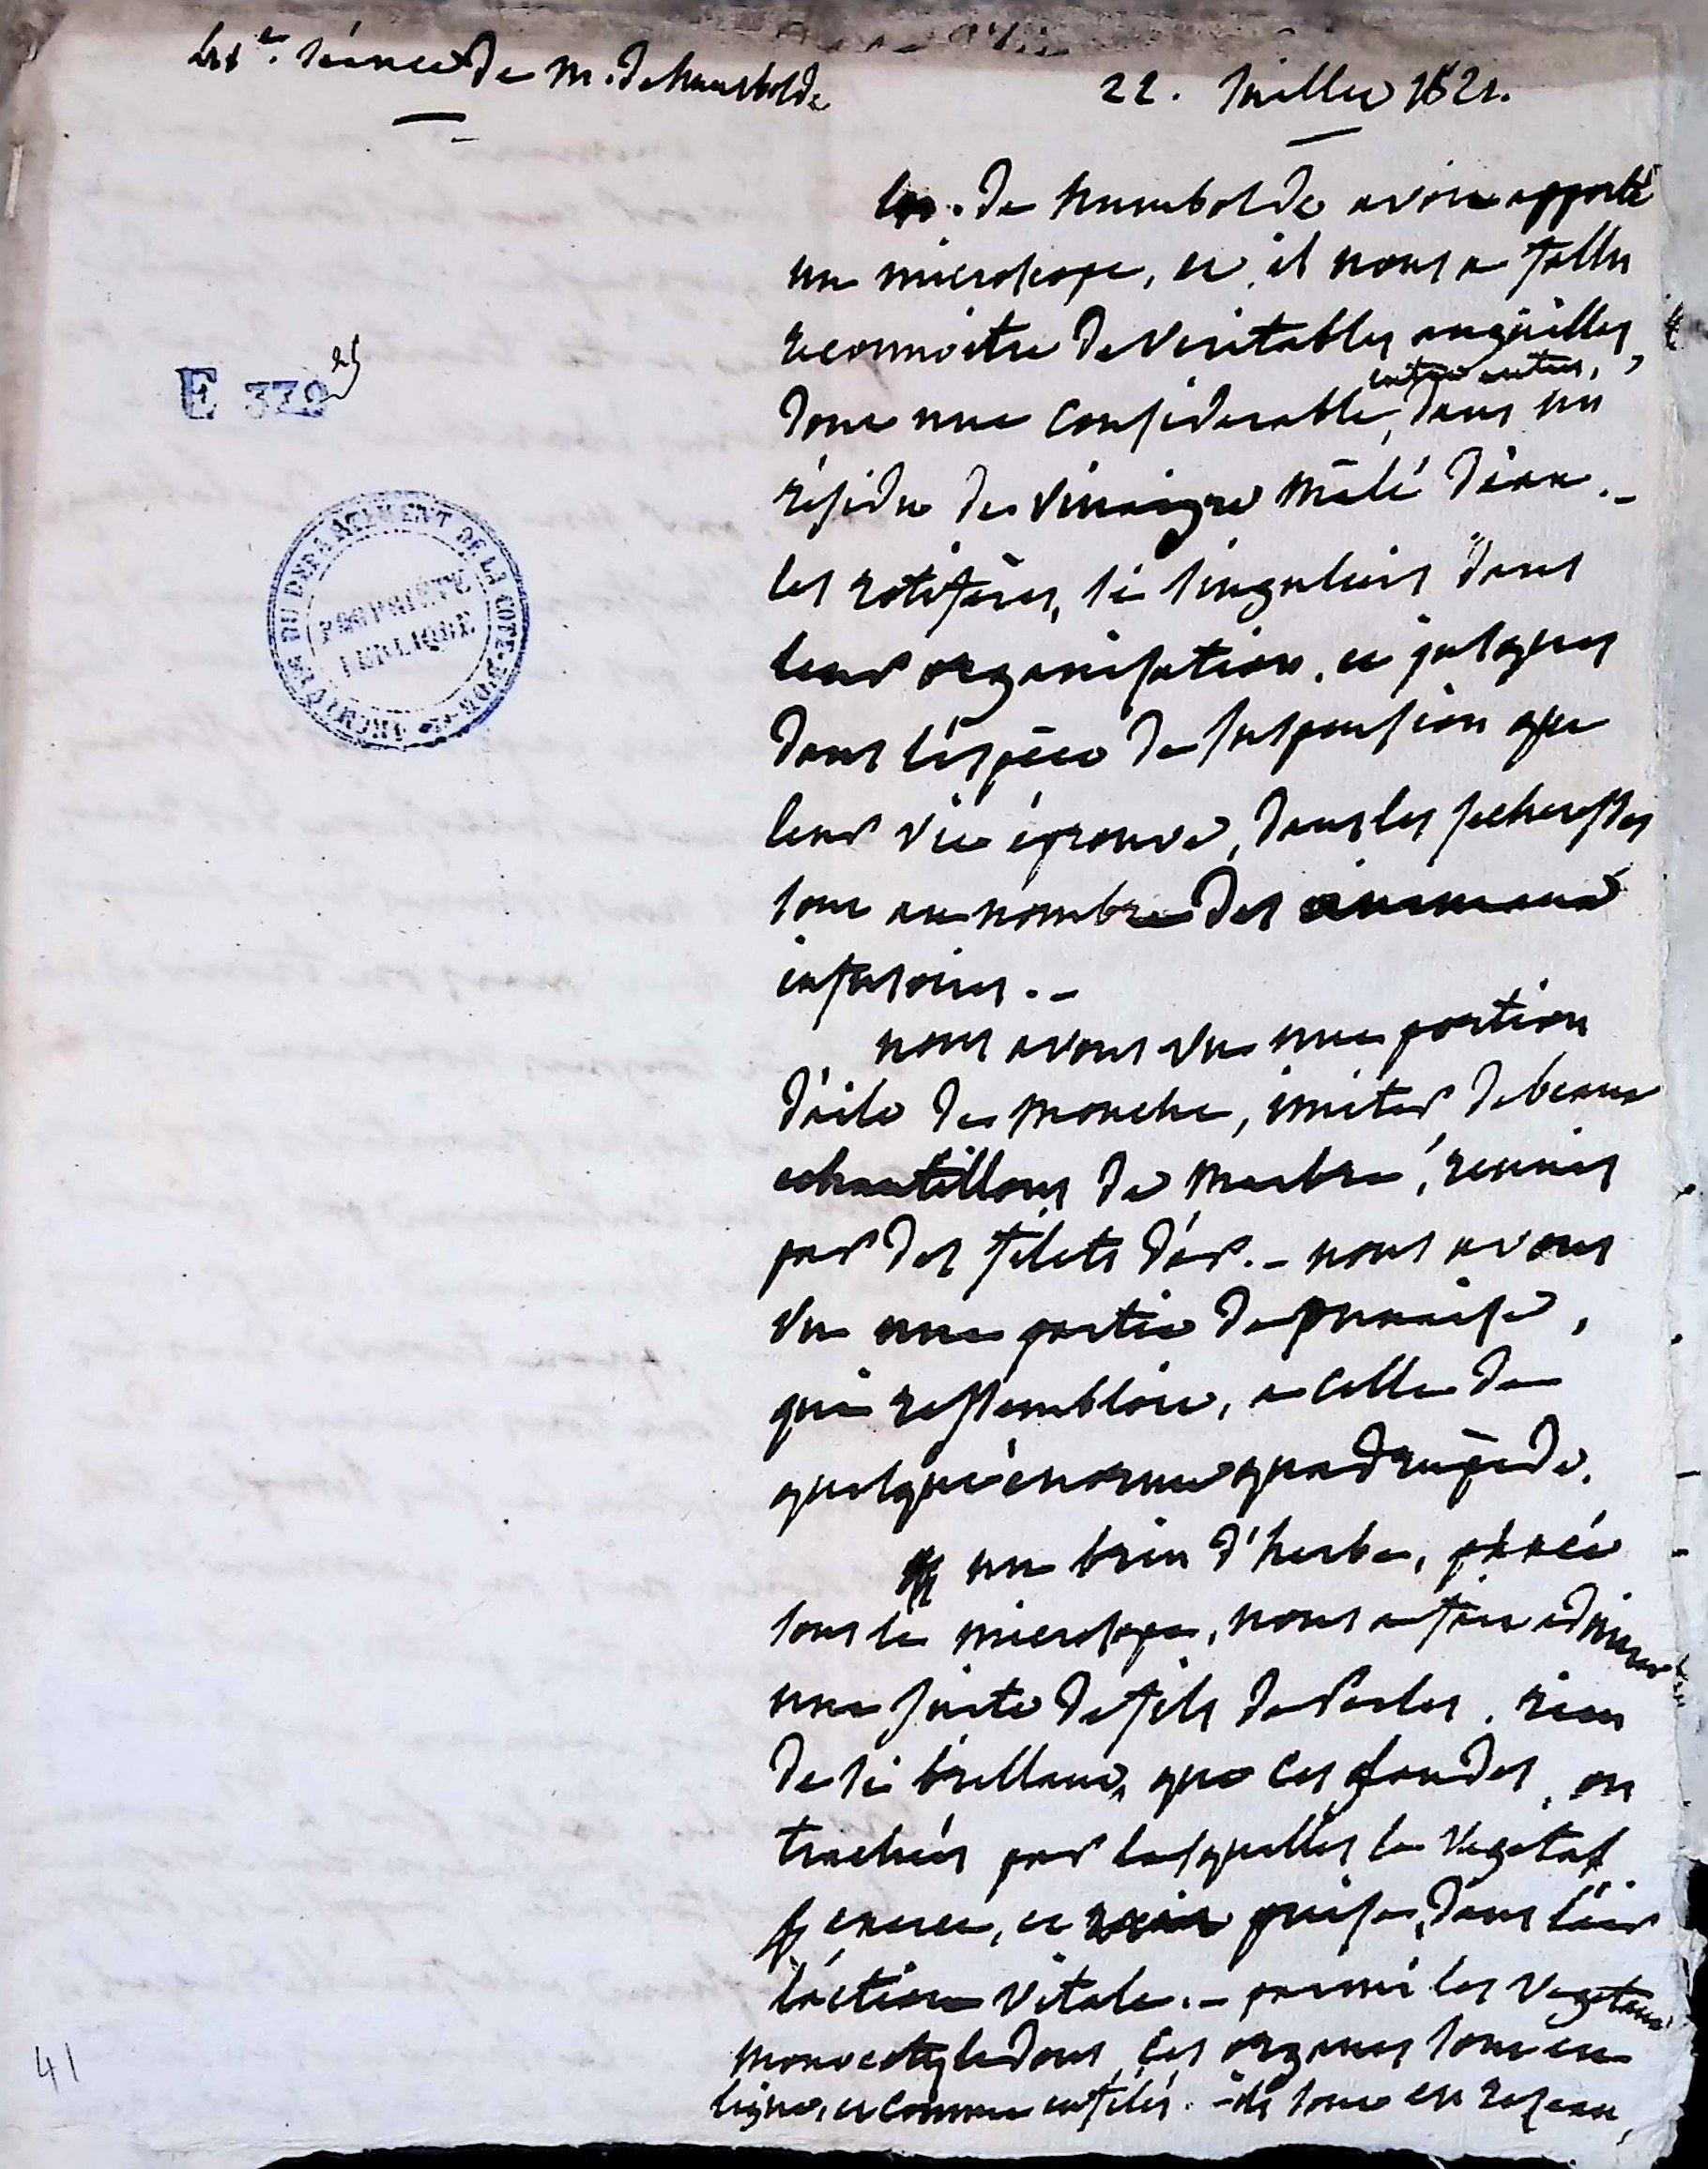 séance de M. de humboldt
22. Juillet 1821.
M. de humboldt avoit apporté
un microscope, et il nous a fallu
reconnoitre de veritables anguilles,
entre autres,
dont une considerable, dans un
résidu de vinaigre mêlé d'eau. _
les rotifères, si singuliers dans
leur organisation, et jusques
dans l'éspèce de suspension que
leur vie éprouve, dans les secheresses
sont au nombre des animaux
infusoires. _
nous avons vu une portion
d'aile de mouche, imiter de beaux
echantillons de marbre, reunis
par des filets d'or. _ nous avons
vu une partie de punaise,
qui ressembloit, a celle de
quelqu'énorme quadrupède.
un brin d'herbe, placé
sous le microscope, nous a fait admirer
une suite de fils de Perles. rien
de si brillant, que ces glandes, ou
trachées par lesquelles le vegetal
et puise, dans l'air
l'action vitale. _ parmi les vegetaux
monocotyledons, ces organes sont en
ligne, et comme enfilés. ils sont en reseau,
E 332 25
ARCHIVES DU DEPARTEMENT DE LA COTE-D'OR
PROPRIÉTÉ
PUBLIQUE
41